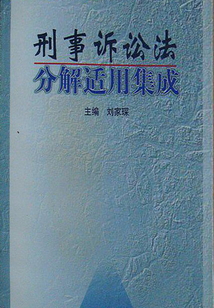 刑事诉讼法
分解适用集成
主编 刘家琛